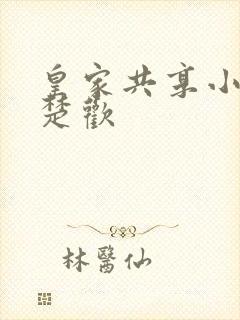 皇家共享小
楚歡
林醫仙